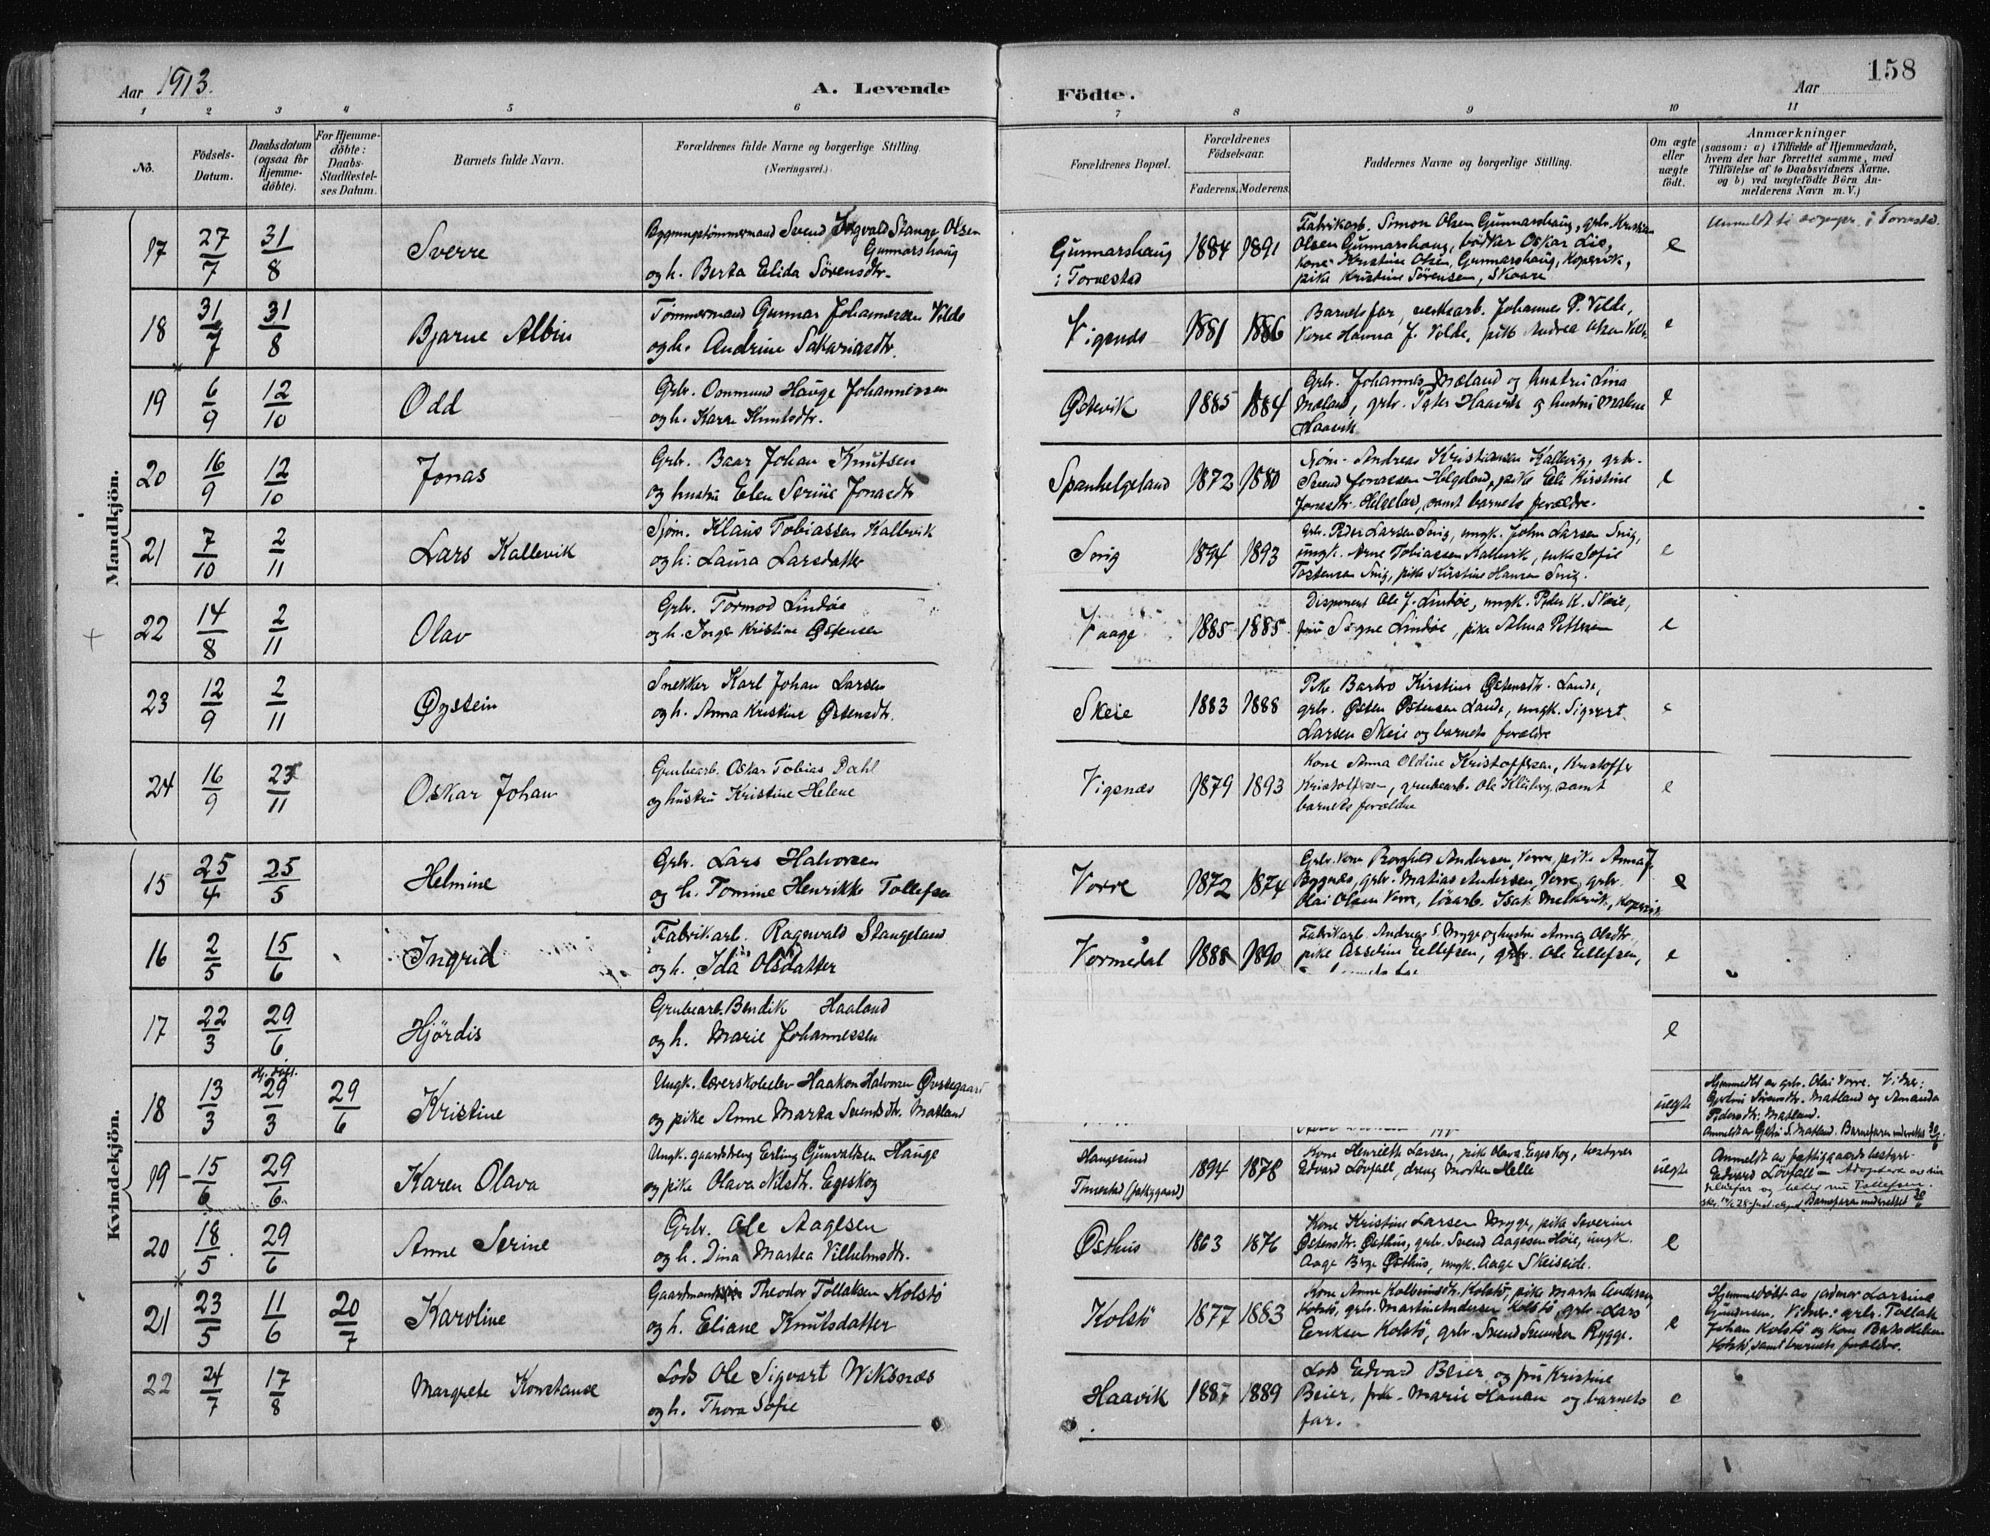 Aar 1913.
A. Levende
Födte.
Aar
158
1 2 3 4 5 6 7 8 9 10 11
No.
Födsels-
Datum.
Daabsdatum
(ogsaa for
Hjemme-
döbte).
For Hjemme-
döbte:
Daabs-
Stadfæstel-
ses Datum.
Barnets fulde Navn.
Forældrenes fulde Navne og borgerlige Stilling.
(Næringsvei.)
Forældrenes Bopæl.
Forældrenes
Födselsaar.
Faderens. Moderens.
Faddernes Navne og borgerlige Stilling.
Om ægte
eller
uægte
födt.
Anmærkninger
(saasom: a) i Tilfælde af Hjemmedaab,
hvem der har forrettet samme, med
Tilföielse af to Daabsvidners Navne,
og b) ved uægtefödte Börn An-
melderens Navn m. V.)
Mandkjön.
17 27/7 31/8 Sverre
Bygningstømmermand Svend Ingvald Stange Olsen
Gunnarshaug
og h. Berta Elida Sørensdtr.
Gunnarshaug
i Torvestad
1884 1891
Fabrikarb. Simon Olsen Gunnarshaug, grbr. Kristian
Olsen Gunnarshaug, bødker Oskar Lie,
kone Kristine Olsen Gunnarshaug, Kopervik,
pike Kristine Sørensen, Skaare
e
Anmeldt til sogнepr. i Torvestad.
18 31/7 31/8 Bjarne Albin
Tømmermand Gunnar Johannessen Velde
og h. Andrine Sakariasdtr.
Vigsnes
1881 1886
Barnets far, Johannes P. Velde,
Kone Hanna J. Velde, pike Andrea Olsen
e
19 6/9 12/10 Odd
Grbr. Ommund Hauge Johannessen
og h. Karen Knutsdtr.
Østevik
1885 1884
Grbr. Johannes Mæland og hustru Lina
Mæland, grbr. Peter Haavik og hustru Malene
Haavik
e
20 16/9 12/10 Jonas
Grbr. Baar Johan Knutsen
og hustru Elen Serine Jonasdtr
Spanhelgeland
1872 1880
Sjøm. Andreas Kristiansen Kallevig, grbr.
Svend Jonassen Helgeland, pike Eli Kirstine
Jonasdtr. Helgeland, samt barnets forældre.
e
21 7/10 2/11 Lars Kallevik
Sjøm. Klaus Tobiassen Kallevik
og h. Laura Larsdatter
Snig
1894 1893
grbr. Peder Larsen Snig, ungk. John Larsen Snig,
ungk. Arne Tobiassen Kallevik, enke Sofie
Tostensen Snig, pike Kirstine Hansen Snig.
e
22 14/8 2/11 Olav
Grbr. Tormod Lindøe
og h. Inger Kristine Østensen
Vaage
1885 1885
Disponent Ole J. Lindøe, ungk. Peder K. Skeie,
fru Signe Lindøe, pike Alma Pettersen
e
23 12/9 2/11 Øystein
Snekker Karl Johan Larsen
og h. Anna Kristine Østensdtr.
Skeie
1883 1888
Pike Barbro Kirstine Østensdtr. Lande,
grbr. Østen Østensen Lande, ungk. Sigvert
Larsen Skeie og barnets forældre
e
24 16/9 23/11 Oskar Johan
Grubearb. Oskar Tobias Dahl
og hustru Kristine Helene
Vigsnæs
1879 1893
Kone Anna Oldine Kristoffersen, Kristoffer
Kristoffersen, grubearb. Ole Kleiberg, samt
barnets forældre
e
Kvindekjön.
15 25/4 25/5 Helmine
Grbr. Lars Halvorsen
og h. Tomine Henrikke Tollefsen
Vorre
1872 1874
Grbr. kone Borghild Andersen, Vorre, pike Anna J
Bygnes, grbr. Matias Andersen, Vorre, grbr.
Olai Olsen Vorre, løsarb. Isak Melkevik, Kopervik
e
16 2/5 15/6 Ingrid
Fabrikarb. Ragnvald Stangeland
og h. Ida Olsdatter
Vormedal
1888 1890
Fabrikarb. Andreas S. Myge og hustru Anna Olsdtr.
pike Asseline Eellefsen, grbr. Ole Eellefsen,
e
17 22/3 29/6 Hjördis
Grubearb. Bendik Haaland
og h. Marie Johannessen
e
18 13/3 Hj. døbt. 29/3 29/6 Kristine
Ungk. lærerskoleelev Haakon Halvorsen Øvstegaard
og pike Anne Marta Svendsdtr. Matland
uegte
Hjemmedbt av grbr. Olai Vorre. Vidner:
Gjertru Sørensdtr. Matland og Amanda
Pedersdtr. Matland.
Anmeldt av Gjertru S. Matland. Barnefaren underrettet 30/6.
19 15/6 29/6 Karen Olava
Ungk. gaardsdreng Erling Gunvaldsen Hauge
og pike Olava Nilsdtr. Egeskog
Haugesund
Torvestad (fattiggaard)
1894 1878
Kone Henriette Larsen, pike Olava Egeskog, bestyrer
Edvard Lövfall, dreng Morten Helle
uegte
Anmeldt av fattiggaardsbestyrer
Edvard Lövfall – Adopteret av sin
og heter nu Tollefsen.
Barnefaren underrettet 30/6
20 18/5 29/6 Anne Serine
Grbr. Ole Aagesen
og h. Dina Martea Vilhelmsdtr.
Østhus
1863 1876
Kone Kristine Larsen Myge, pike Severine
Østensdtr. Østhus, grbr. Svend Aagesen Høie, ungk.
Aage Birge Østhus, ungk. Aage Skeiseide.
e
21 23/5 11/6 20/7 Karoline
Gaardmand Theodor Tollaksen Kolstö
og h. Eliane Knutsdatter
Kolstö
1877 1883
Kone Anne Kolbeinsdtr. Kolstø, pike Marta Andersen
Kolstø, grbr. Martin Andersen Kolstø, grbr. Lars
Eriksen Kolstø, grbr. Svend Svendsen Rygge.
e
Hjemmedøbt av jordmor Larsine
Gundersen, Vidner: grbr. Tollak
Johan Kolstø og kone Berta Helene
Kolstø, samt barnets forældre.
22 24/7 17/8 Margrete Konstanse
Lods Ole Sigvart Wiksnæs
og h. Thora Sofie
Haavik
1887 1889
Lods Edvard Beier og fru Kristine
Beier, frk. Marie Hanan og barnets
far.
e